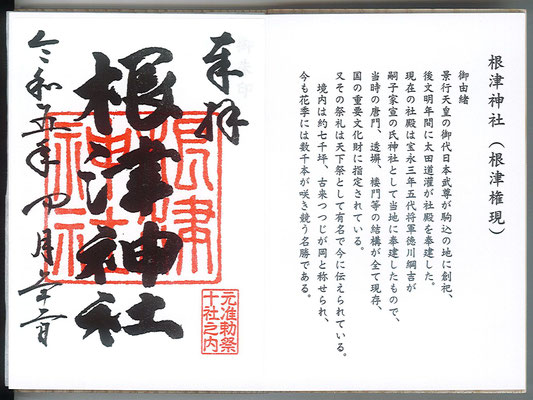 根津神社(根津権現)
御由緒
景行天皇の御代日本武尊が駒込の地に創祀、
後文明年間に太田道灌が社殿を奉建した。
現在の社殿は宝永三年五代将軍徳川綱吉が
嗣子家宣の氏神社として当地に奉建したもので、
当時の唐門、透塀、楼門等の結構が全て現存、
国の重要文化財に指定されている。
又その祭礼は天下祭として有名で今に伝えられている。
境内は約七千坪、古来つつじが岡と称せられ、
今も花季には数千本が咲き競う名勝である。
奉拝
根津神社
根津
神社
元准勅祭
十社之内
令和五年四月